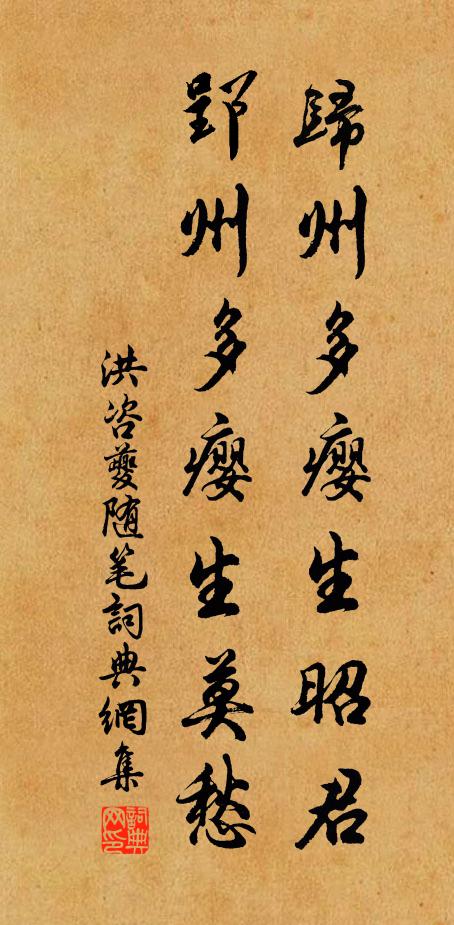 歸州多癭生昭君
郢州多癭生莫愁
洪咨夔随笔詞典網集
詞典網印